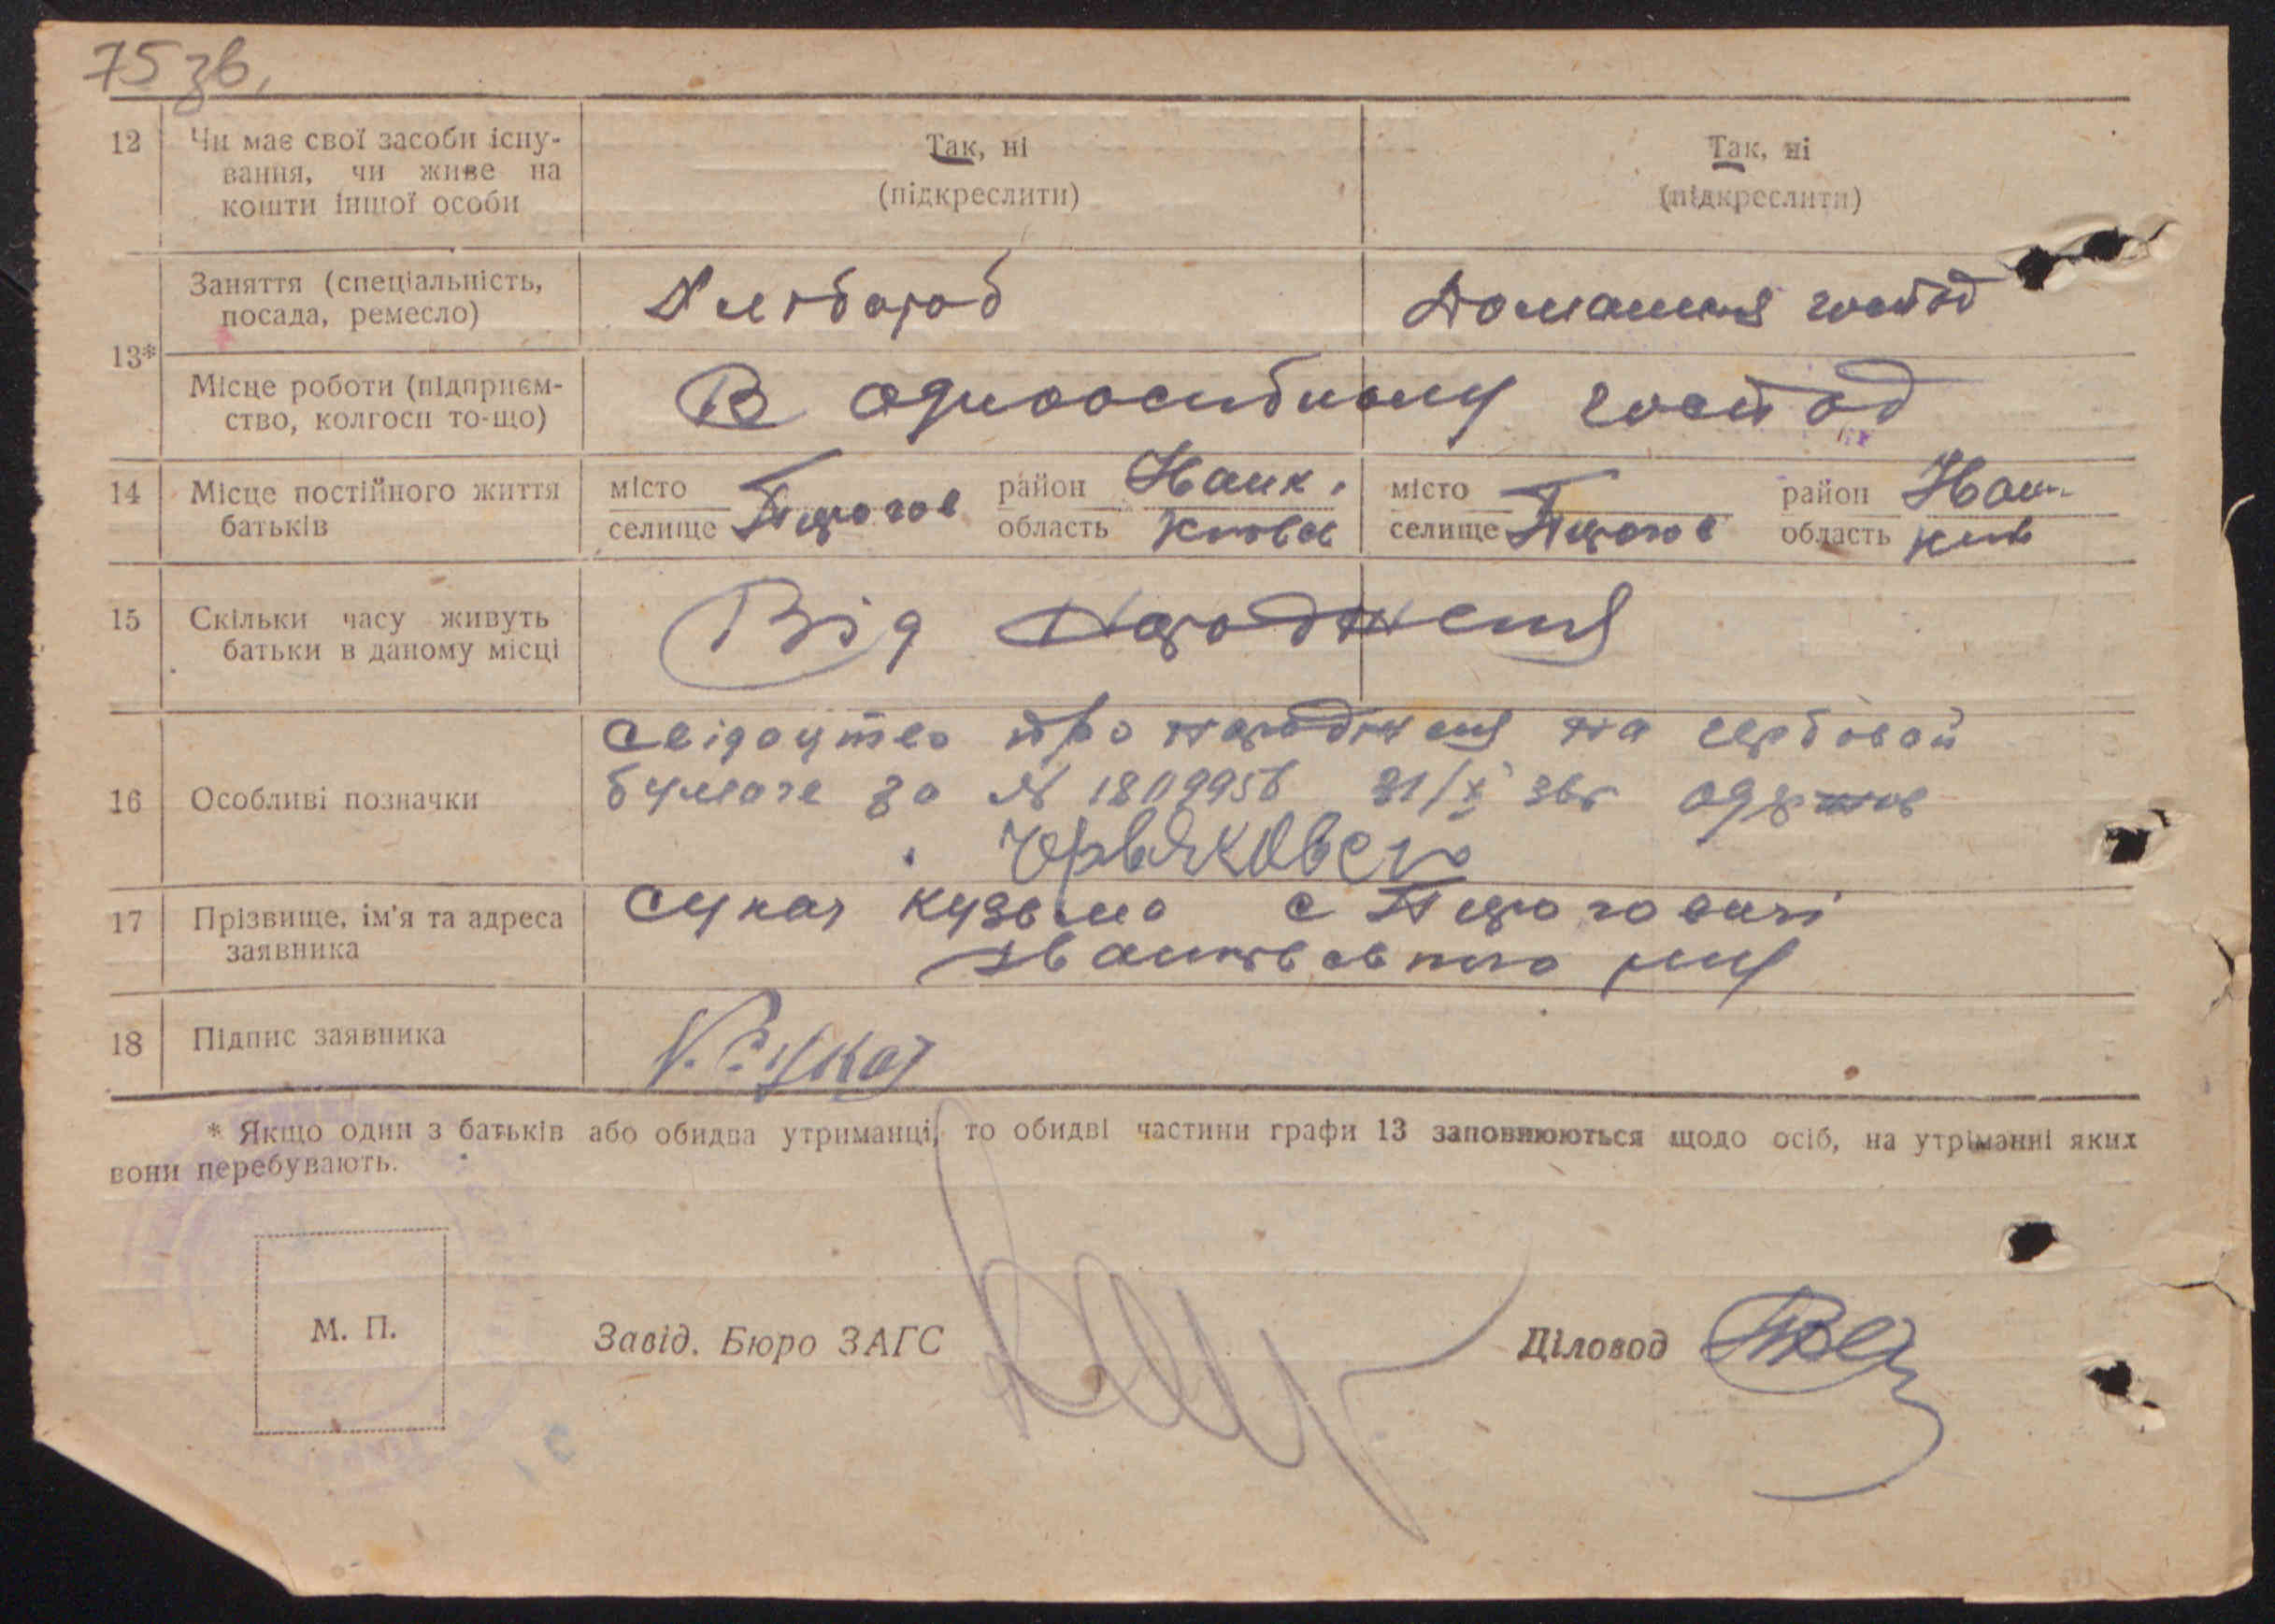 75 зв.
12 Чи має свої засоби існу-
вання, чи живе на
кошти іншої особи
Так, ні
(підкреслити)
Так, ні
(підкреслити)
13*
Заняття (спеціальність,
посада, ремесло)
Хлібороб
Домашня господ
Місце роботи (підприєм-
ство, колгосп то-що)
В одноосібному господ
14 Місце постійного життя
батьків
місто
селище
район
область
Київськ
місто
селище
район
область
Київ
15 Скільки часу живуть
батьки в даному місці
Від народження
16 Особливі позначки
свідоцтво про народження на гербовой
бумаге за № 1809956 31/X 36г
17 Прізвище, ім'я та адреса
заявника
Сукач Кузьма с
18 Підпис заявника
К. Сукач
* Якщо один з батьків або обидва утриманці, то обидві частини графи 13 заповнюються щодо осіб, на утріманні яких
вони перебувають.
М. П.
Завід. Бюро ЗАГС
Діловод